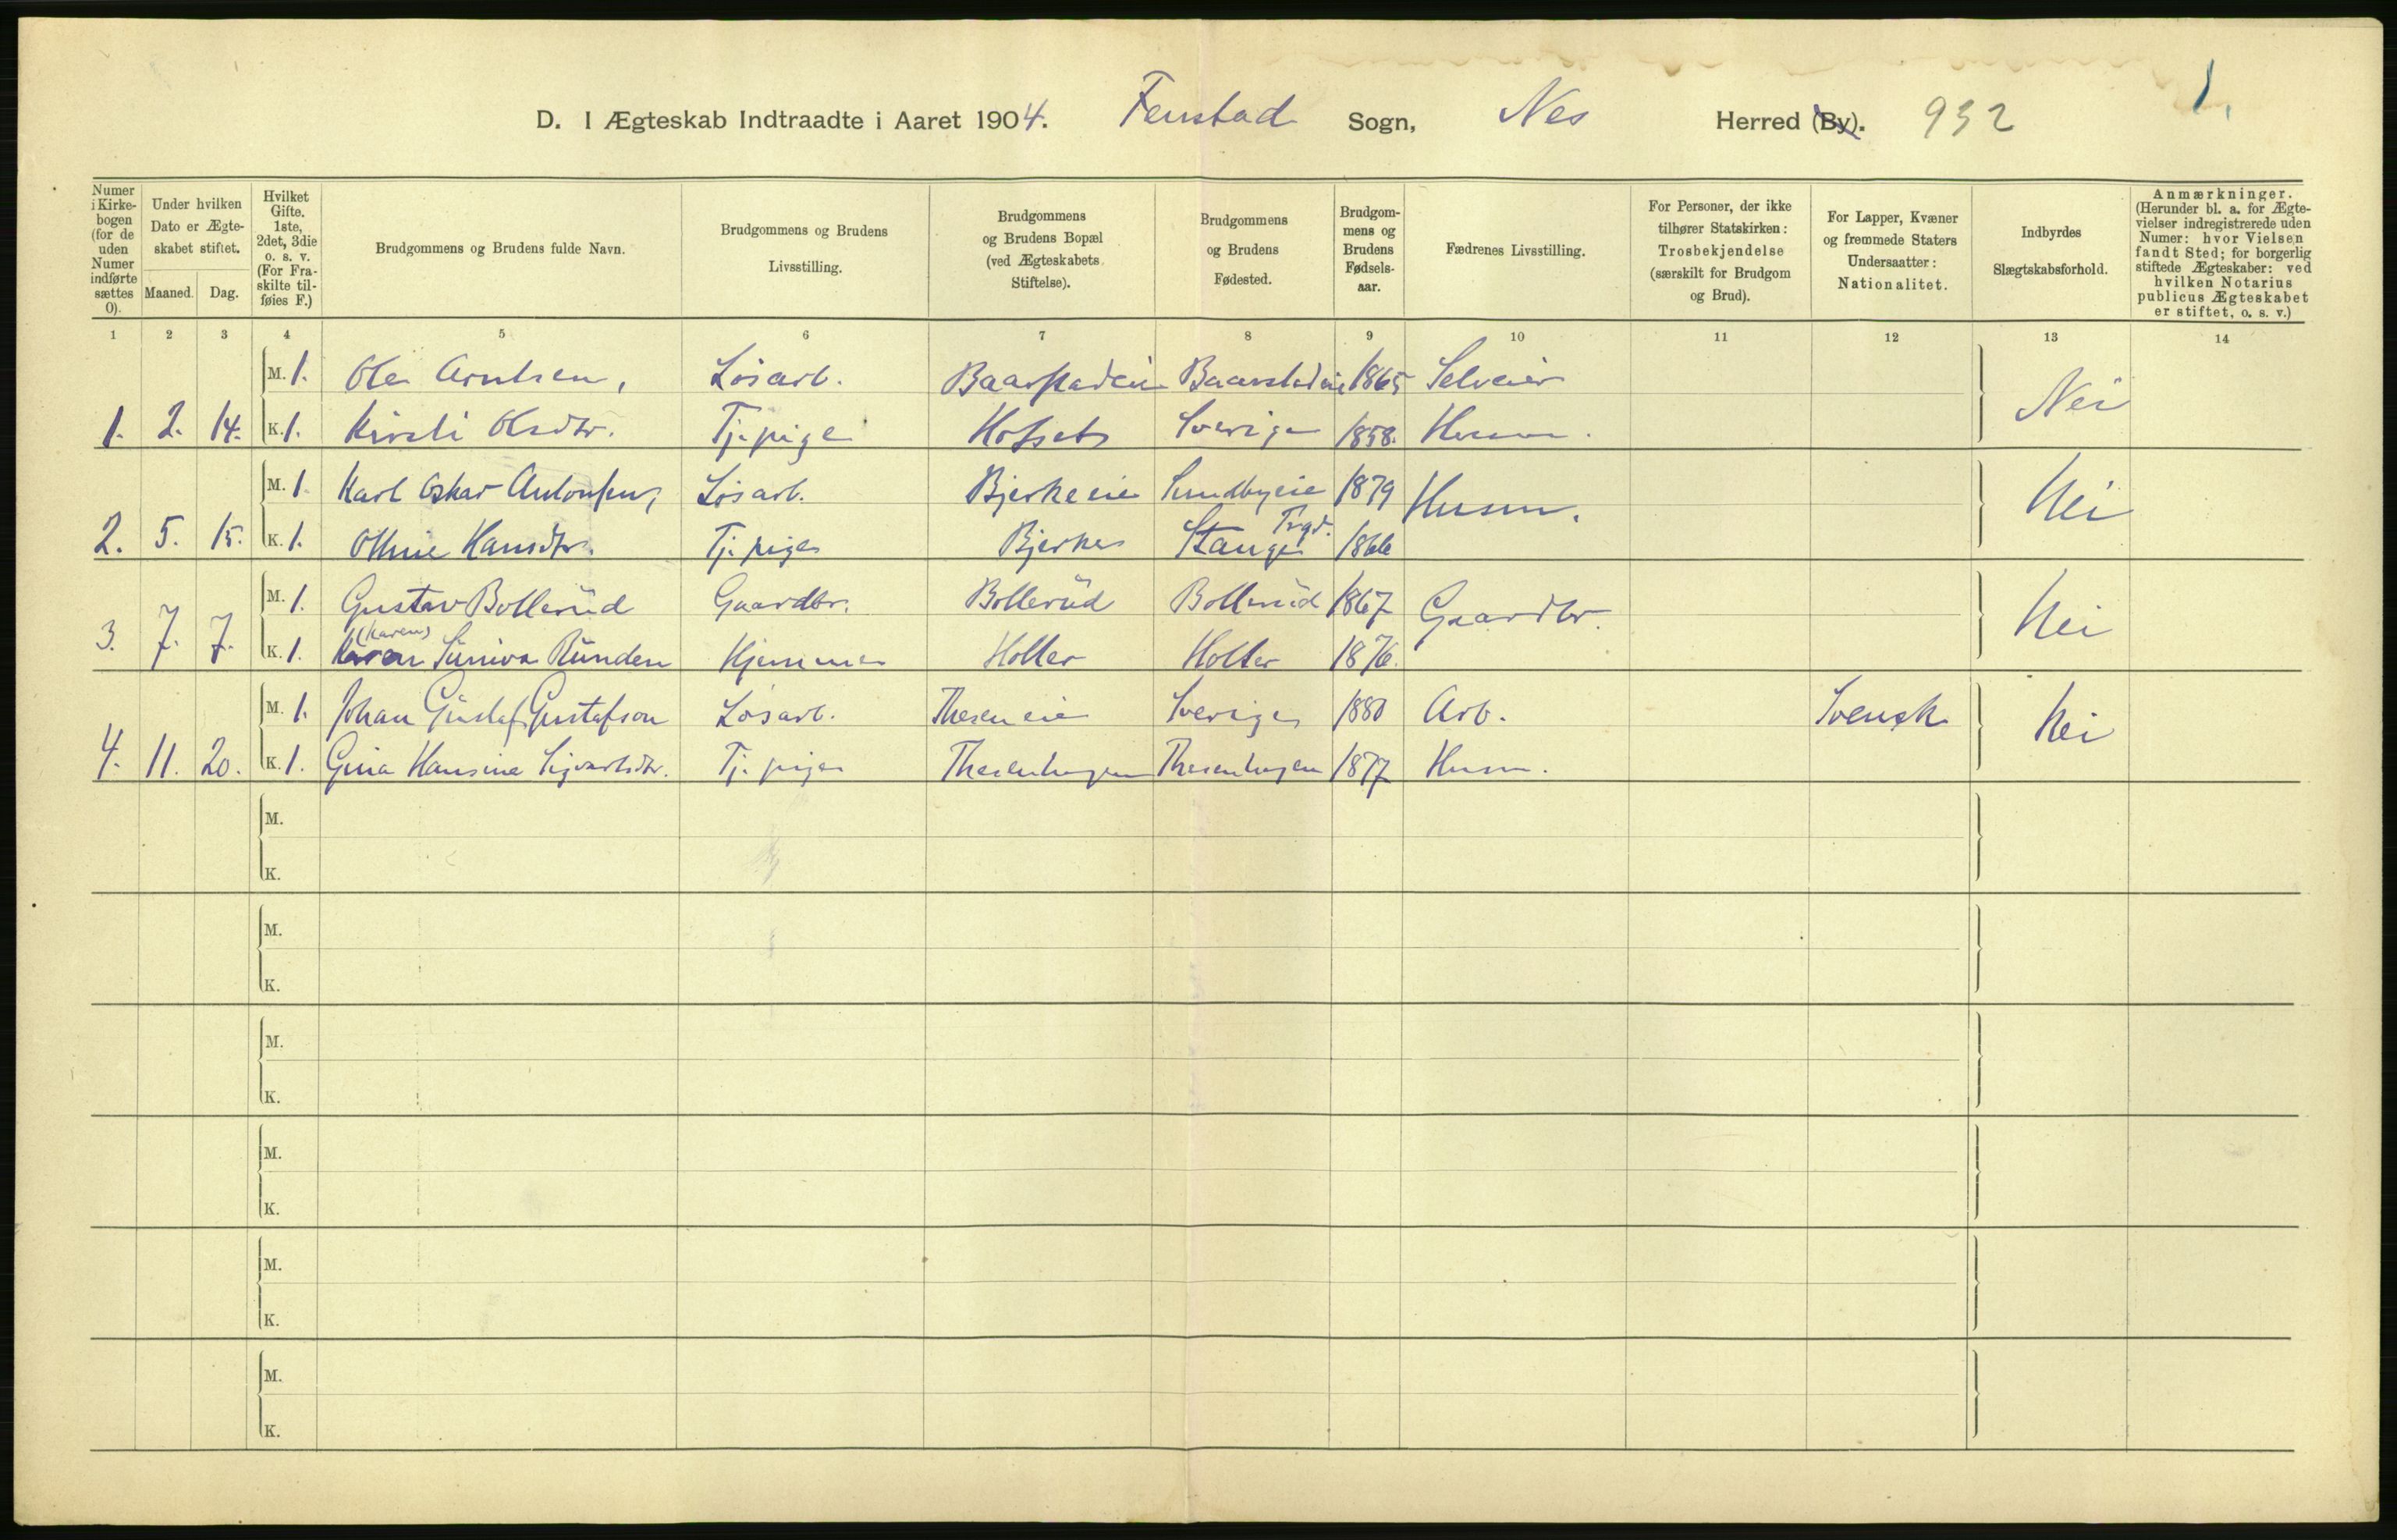 D. I Ægteskab Indtraadte i Aaret 1904. Fenstad Sogn, Nes Herred (By). 932 1.
Numer i Kirkebogen (for de uden Numer indførte sættes 0).
Under hvilken Dato er Ægteskabet stiftet.
Maaned. Dag.
Hvilket Gifte. 1ste, 2det, 3die o. s. v. (For Fraskilte tilføies F.)
Brudgommens og Brudens fulde Navn.
Brudgommens og Brudens Livsstilling.
Brudgommens og Brudens Bopæl (ved Ægteskabets Stiftelse).
Brudgommens og Brudens Fødested.
Brudgommens og Brudens Fødselsaar.
Fædrenes Livsstilling.
For Personer, der ikke tilhører Statskirken: Trosbekjendelse (særskilt for Brudgom og Brud).
For Lapper, Kvæner og fremmede Staters Undersaatter: Nationalitet.
Indbyrdes Slægtskabsforhold.
Anmærkninger. (Herunder bl. a. for Ægtevielser indregistrerede uden Numer: hvor Vielsen fandt Sted; for borgerlig stiftede Ægteskaber: ved hvilken Notarius publicus Ægteskabet er stiftet, o. s. v.)
1 2 3 4 5 6 7 8 9 10 11 12 13 14
M. 1. Ole Arntsen, Løsarb. Baarstadeie Baarstadeie 1865 Selveier
1. 2. 14. K. 1. Kirsti Olsdtr. Tj. pige Hofseth Sverige 1858. Husm. Nei
M. 1. Karl Oskar Antonsen, Løsarb. Bjerkeeie Sundbyeie 1879 Husm.
2. 5. 15. K. 1. Othine Hansdtr. Tj. pige Bjerke Stange 1866 Nei
M. 1. Gustav Bollerüd Gaardbr. Bollerüd Bollerüd 1867 Gaardbr.
3. 7. 7. K. 1. Karen (Karen) Süniva Ründen Hjemme Holter Holter 1876. Nei
M. 1. Johan Güstaf Gustafson Løsarb. Theseneie Sverige 1880 Arb. Svensk
4. 11. 20. K. 1. Gina Hansine Sigvartsdtr. Tj. pige Thesenhagen Thesenhagen 1877 Husm. Nei
M.
K.
M.
K.
M.
K.
M.
K.
M.
K.
M.
K.